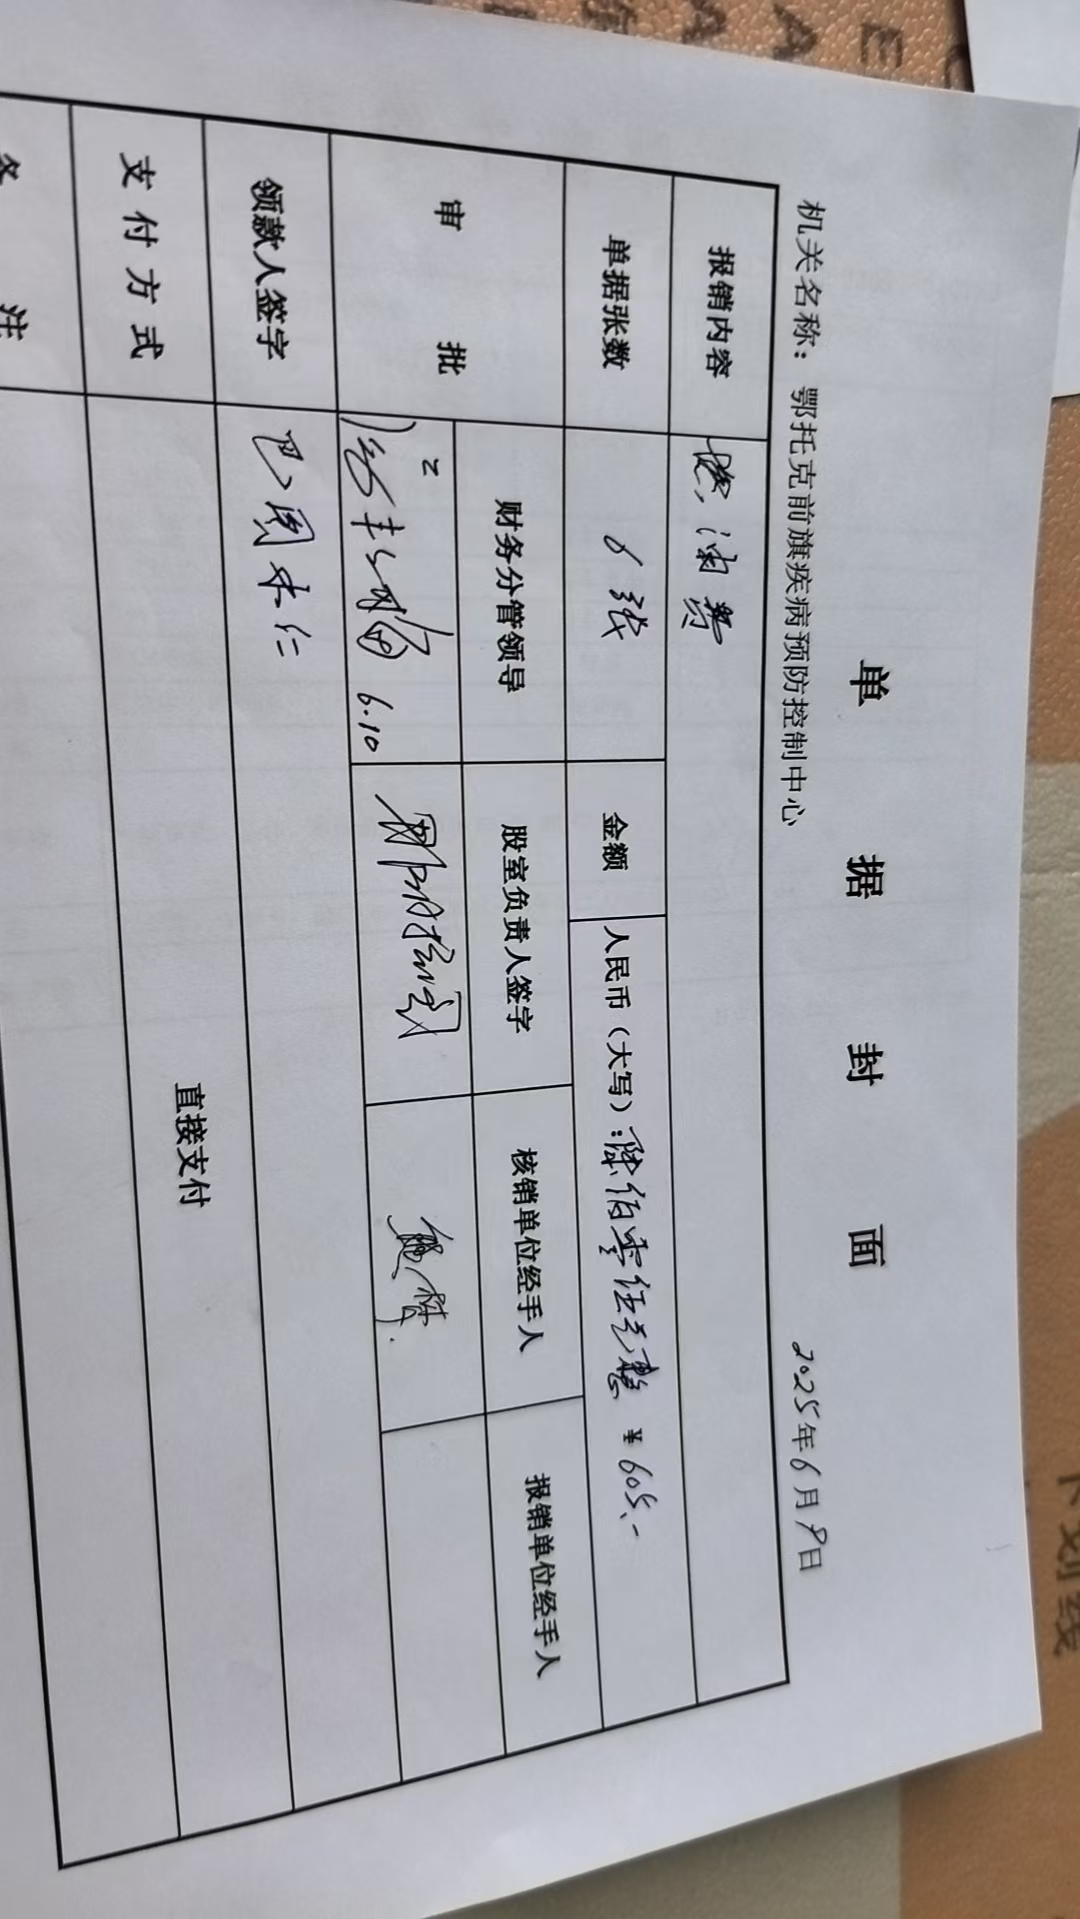 单据封面
机关名称：鄂托克前旗疾病预防控制中心 2025年6月9日
报销内容 燃油费
单据张数 6张 金额 人民币（大写）：陆佰零伍元整 ¥605.-
审批 财务分管领导 股室负责人签字 核销单位经手人 报销单位经手人
6.10
领款人签字 巴图木仁
支付方式 直接支付
注